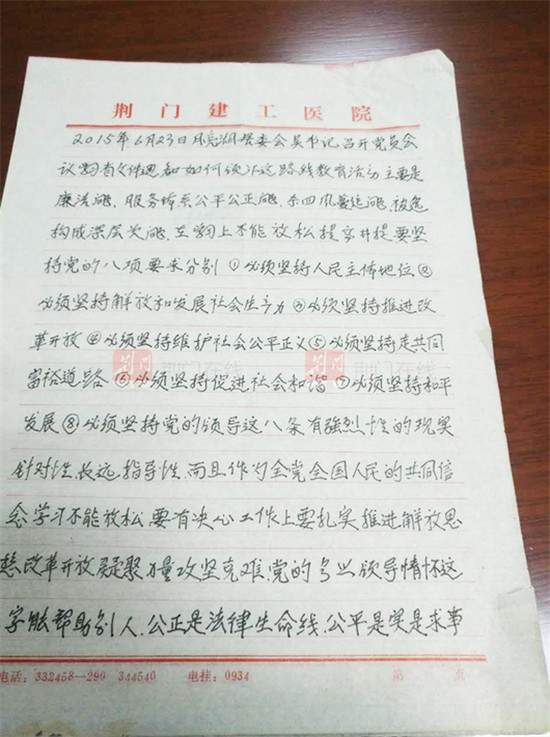 荆门建工医院
2015年6月23日月亮湖居委会吴书记召开党员会
议学习省文件通知如何依法这路线教育活动主要是
廉洁 服务体系公平公正 四风
构成深层次 在学习上不能放松提高并提要坚
持党的八项要求分别①必须坚持人民主体地位②
必须坚持解放和发展社会生产力③必须坚持推进改
革开放④必须坚持维护社会公平正义⑤必须坚持走共同
富裕道路⑥必须坚持促进社会和谐⑦必须坚持和平
发展⑧必须坚持党的领导这八条有强烈性的现实
针对性长远指导性.而且作为全党全国人民的共同信
念学习不能放松要有决心工作上要扎实推进解放思
想改革开放凝聚力量攻坚克难党的 领导情怀这
字能帮助别人.公正是法律生命线.公平是实是求事
荆门在线
电话：332458—290 344540 电挂：0934 第 页